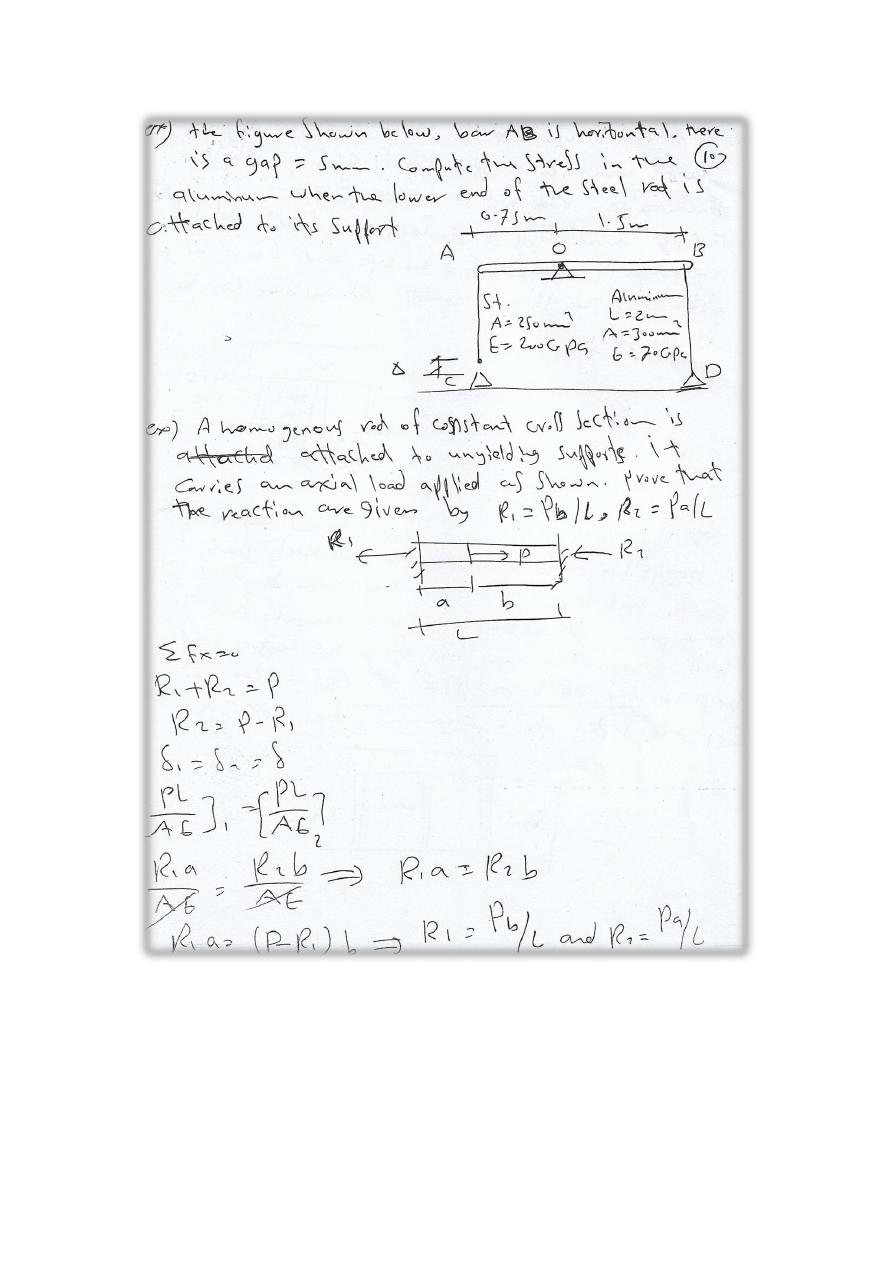 the figure Shown below, bar AB is horizontal. there
is a gap = 5mm. Compute the Stress in the 10
aluminum when the lower end of the Steel rod is
attached to its Support
0.75m 1.5m
A O B
St. Aluminum
A=250mm² L=2m
E=200GPa A=300mm²
E=70GPa
Δ C D
ex) A homogenous rod of constant cross Section is
attached attached to unyielding supports. it
Carries an axial load applied as Shown. Prove that
the reaction are given by R₁ = Pb/L, R₂ = Pa/L
R₁ P R₂
a b
L
Σfx=0
R₁+R₂ = P
R₂ = P-R₁
δ₁ = δ₂ = δ
PL/AE]₁ = [PL/AE]₂
R₁a/AE = R₂b/AE ⇒ R₁a = R₂b
R₁a = (P-R₁)b ⇒ R₁ = Pb/L and R₂ = Pa/L